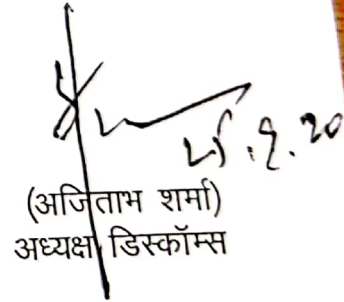 25.9.20
(अजिताभ शर्मा)
अध्यक्ष डिस्कॉम्स